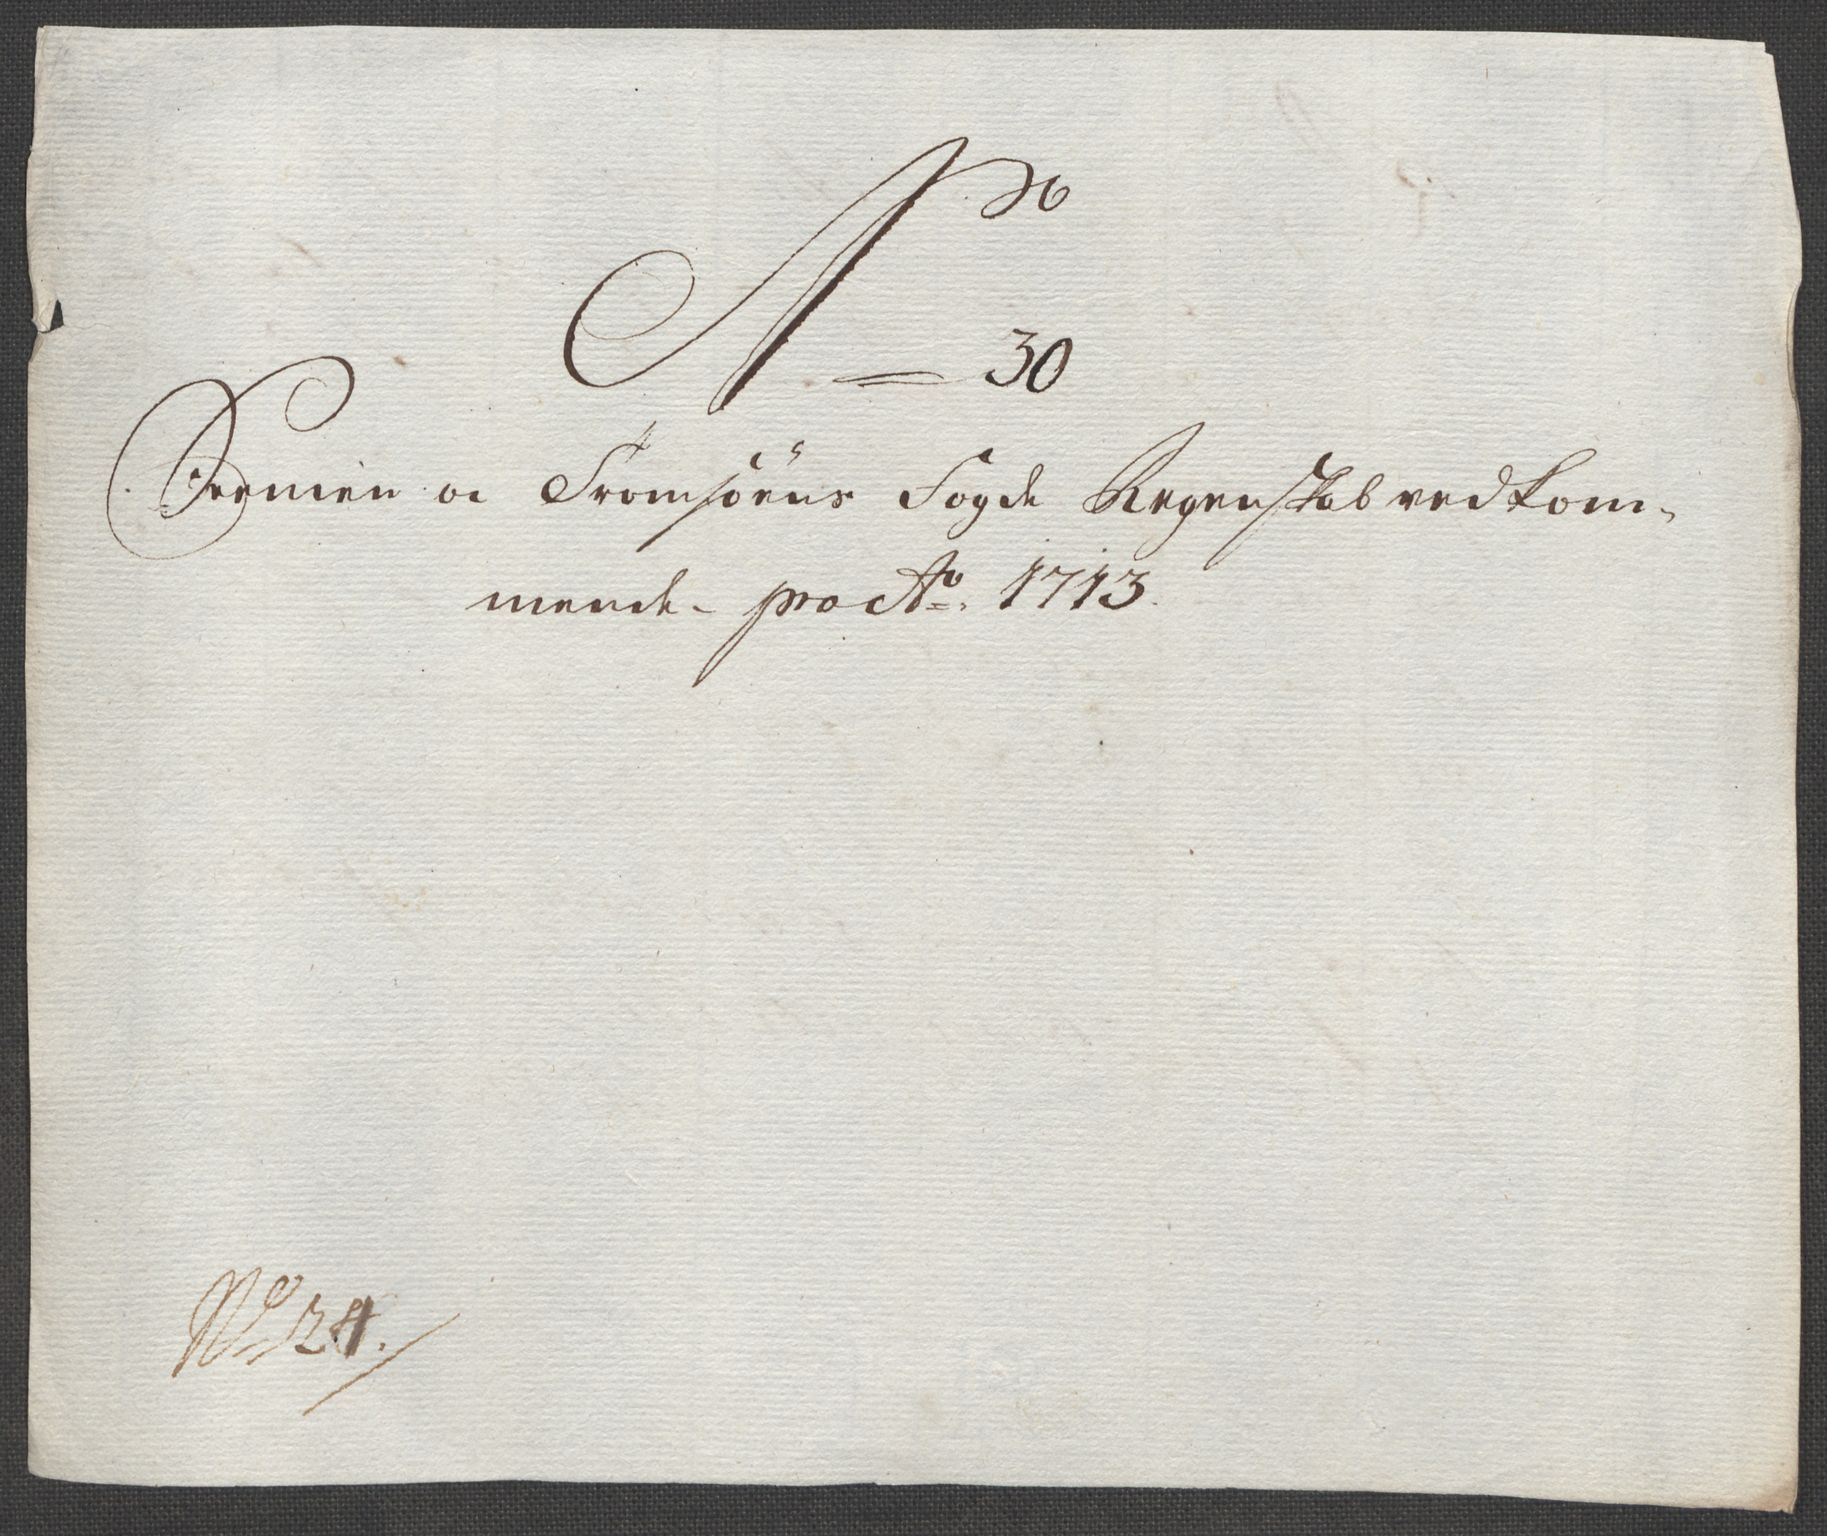 No
30
Sennien oc Tromsöens Fogde Regenskab vedkom-
mende - pro Ao. 1713.
No 24.